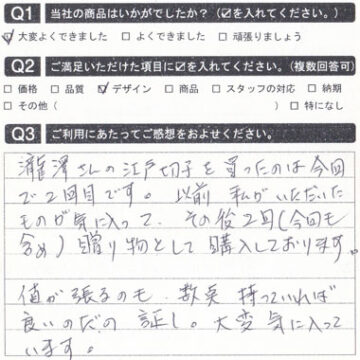 Q1 当社の商品はいかがでしたか？（☑を入れてください。）
☑ 大変よくできました □ よくできました □ 頑張りましょう
Q2 ご満足いただけた項目に☑を入れてください。（複数回答可）
□ 価格 □ 品質 ☑ デザイン □ 商品 □ スタッフの対応 □ 納期
□ その他（ ） □ 特になし
Q3 ご利用にあたってご感想をおよせください。
瀧澤さんの江戸切子を買ったのは今回
で2回目です。以前 私がいただいた
ものが気に入って、その後2回（今回も
含め）贈り物として購入しております。
値が張るのも、数奥 持っていれば
良いのだの証し。大変気に入って
います。